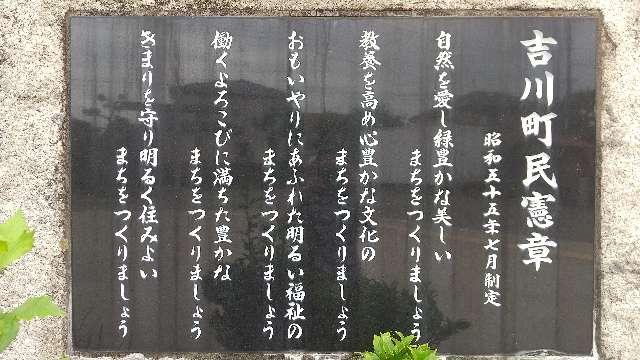 吉川町民憲章
昭和五十五年七月制定
自然を愛し緑豊かな美しい
まちをつくりましょう
教養を高め心豊かな文化の
まちをつくりましょう
おもいやりにあふれた明るい福祉の
まちをつくりましょう
働くよろこびに満ちた豊かな
まちをつくりましょう
きまりを守り明るく住みよい
まちをつくりましょう